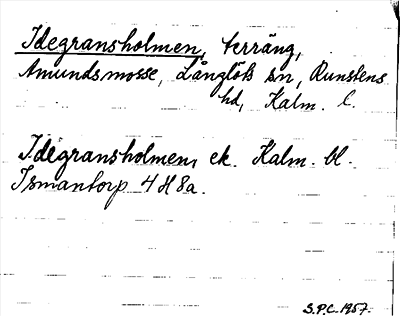 Idegransholmen, terräng,
Amundsmosse, Långlöts sn, Runstens
hd, Kalm. l.
Idegransholmen, ek. Kalm. bl.
Ismantorp 4 H 8a.
S.P.C. 1957.